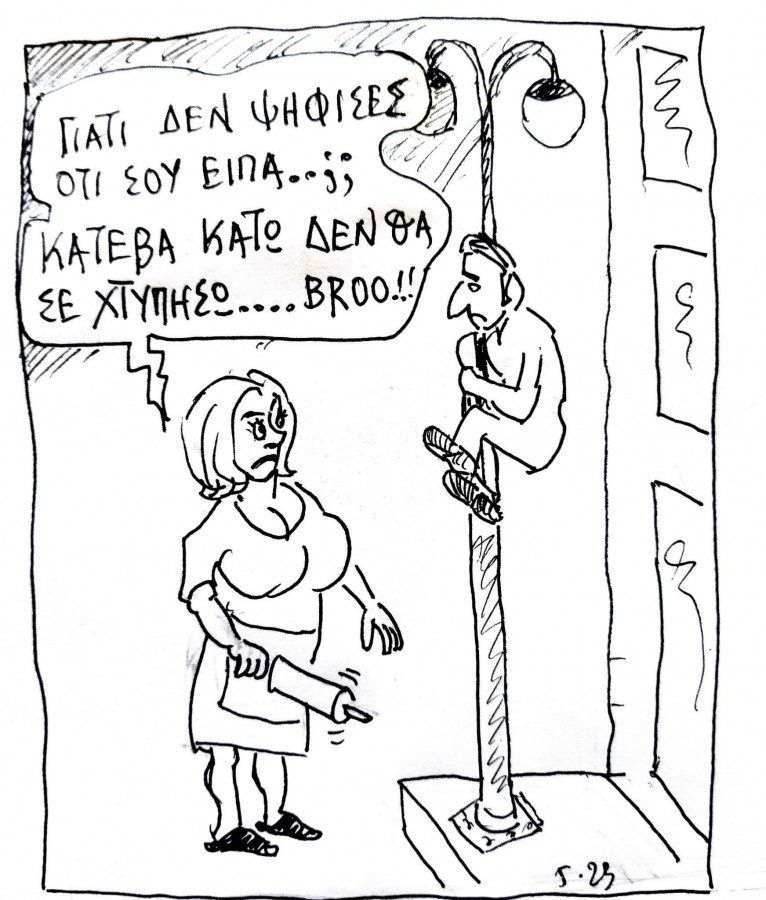 ΓΙΑΤΙ ΔΕΝ ΨΗΦΙΣΕΣ
ΟΤΙ ΣΟΥ ΕΙΠΑ...;;
ΚΑΤΕΒΑ ΚΑΤΩ ΔΕΝ ΘΑ
ΣΕ ΧΤΥΠΗΣΩ..... BROO!!!
5.23